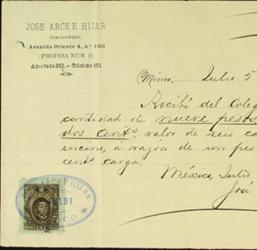 JOSE ARCE E HIJAR
Avenida Oriente 4, nº 150
(PROFESA NUM. 2)
México, Julio 5
Recibí del Coleg
cantidad de nueve pesos
dos cents, valor de seis ca
encino, á razón de un pes
cents carga.
México, Julio
José
ARCE E HIJAR